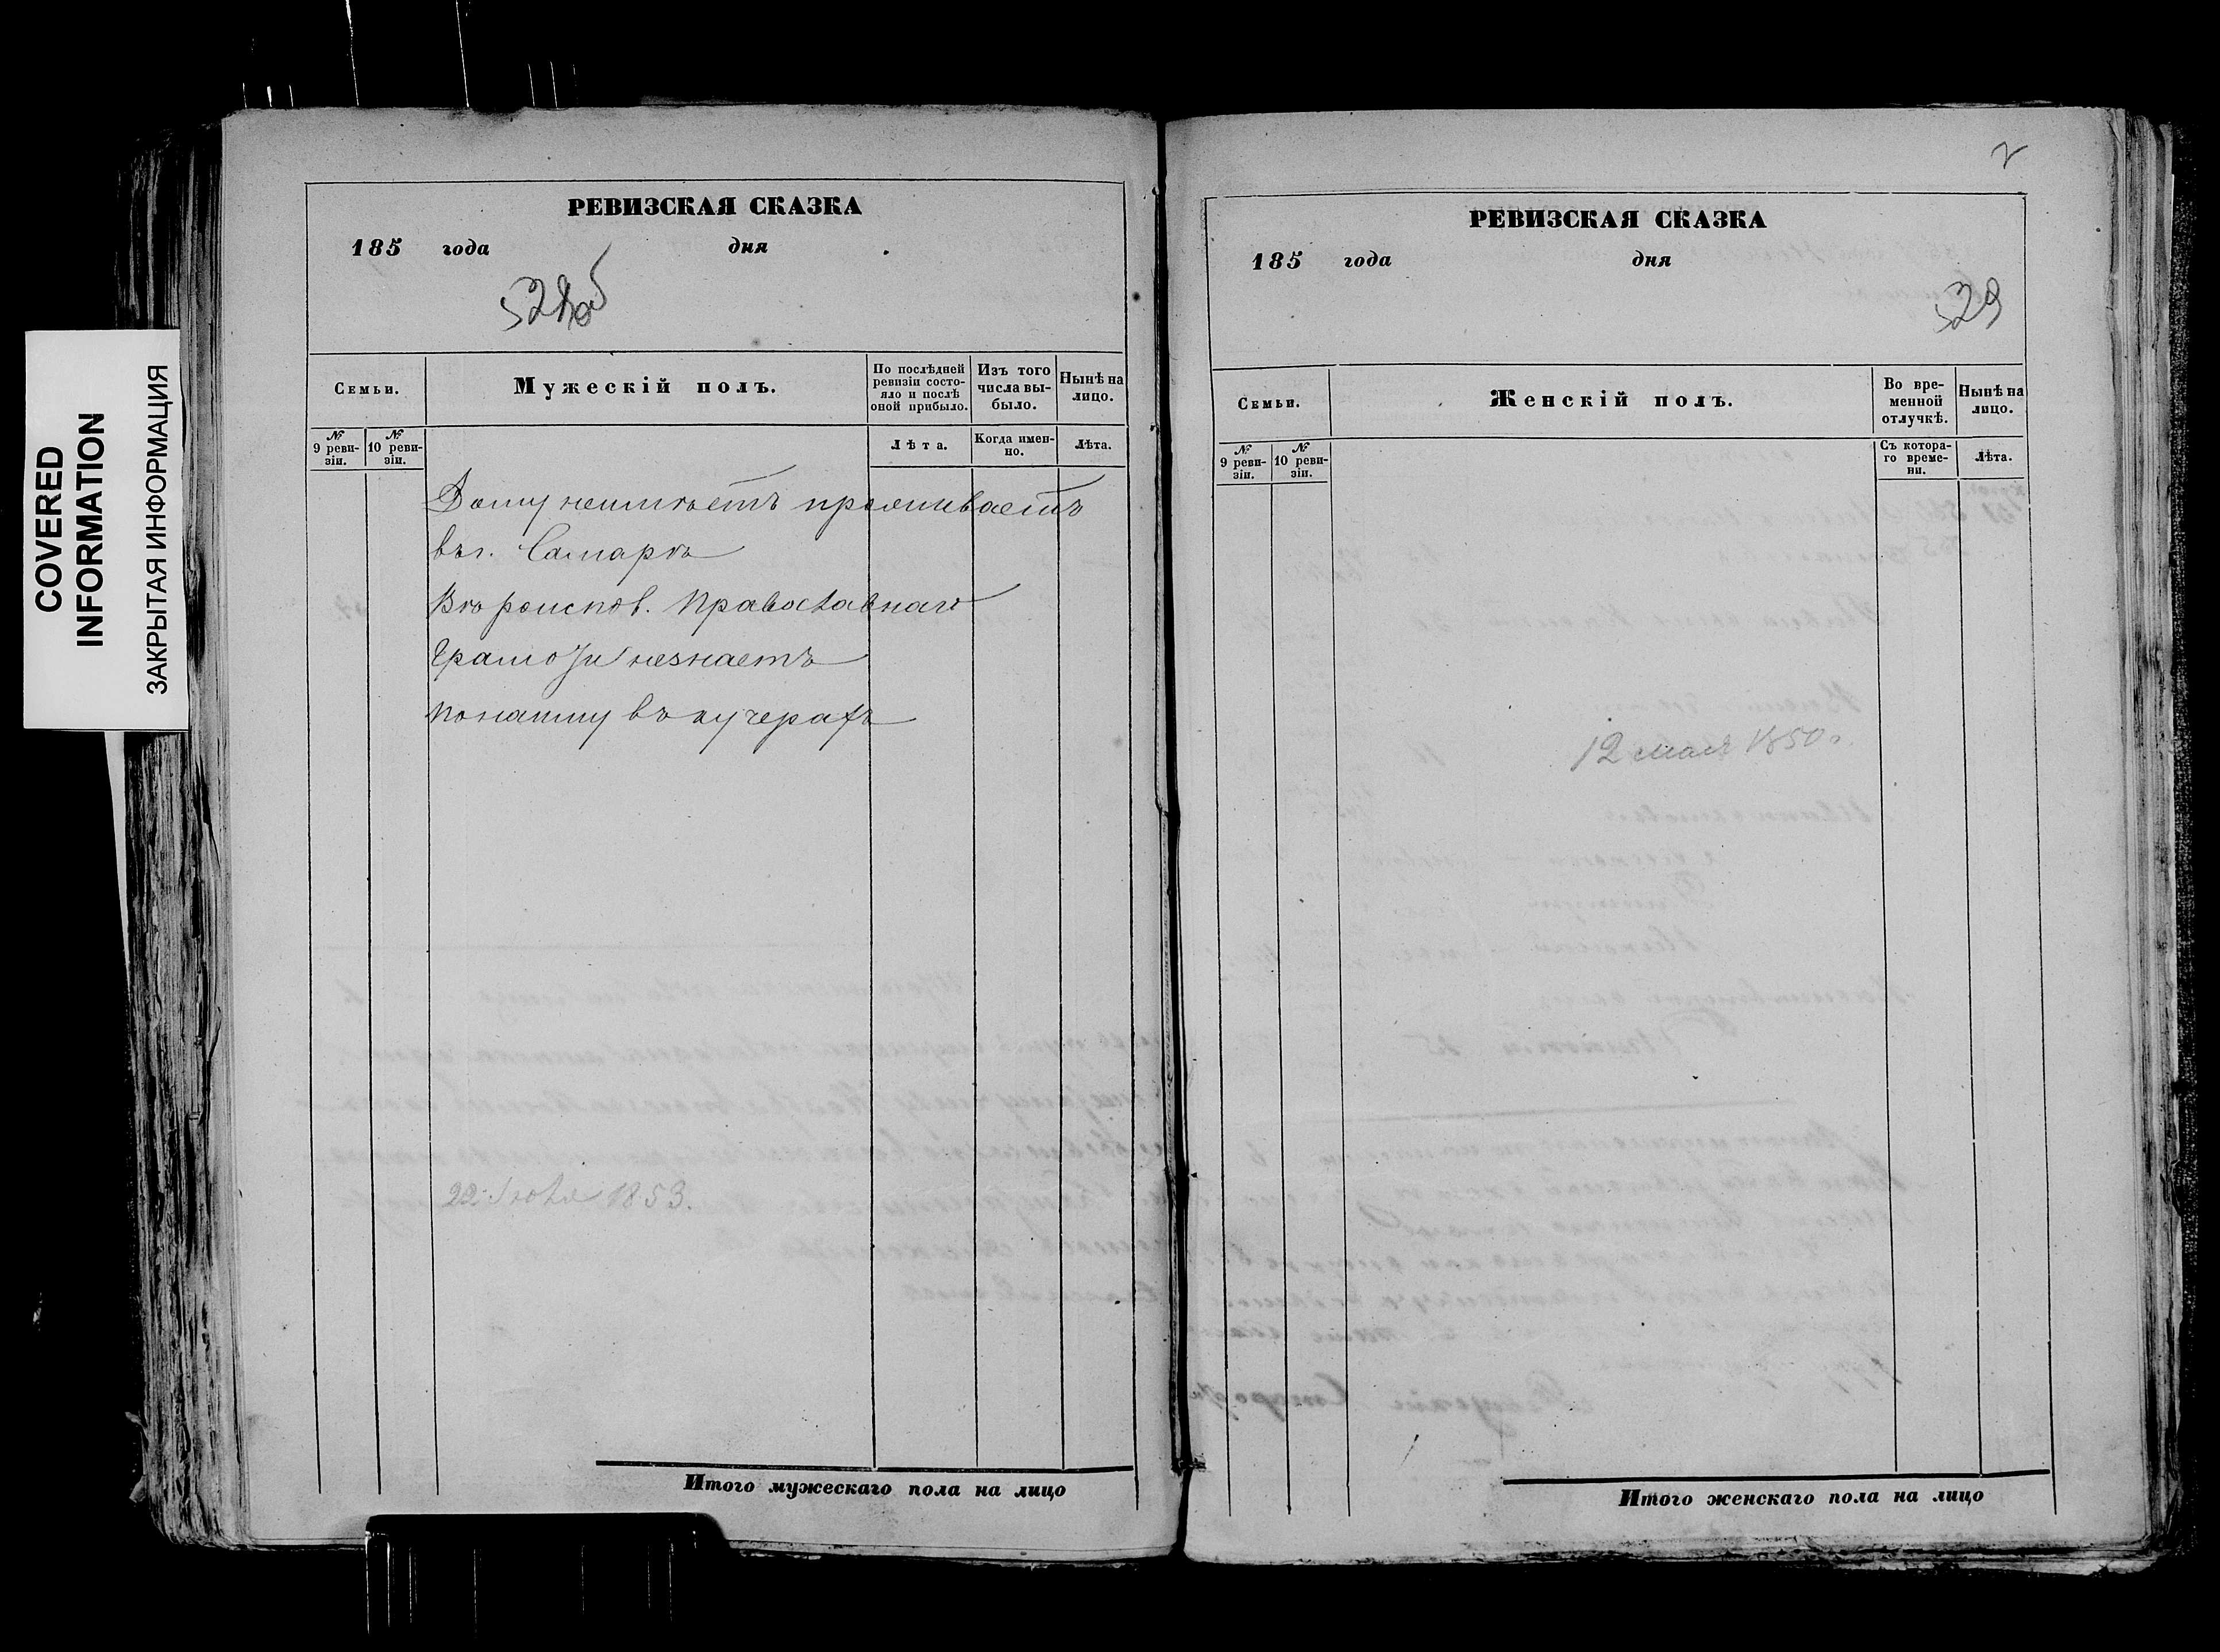 COVERED
INFORMATION
ЗАКРЫТАЯ ИНФОРМАЦИЯ
РЕВИЗСКАЯ СКАЗКА
185 года дня
528 об
Семьи.
Мужескій полъ.
По послѣдней
ревизіи состо-
яло и послѣ
оной прибыло.
Изъ того
числа вы-
было.
Нынѣ на
лицо.
№
9 реви-
зіи.
№
10 реви-
зіи.
Лѣта.
Когда имен-
но.
Лѣта.
Дому неимѣетъ проживаетъ
въ г. Самарѣ
Вѣроиспов. Православнаго
Грамоты незнаетъ
По найму въ кучерахъ
22 Іюля 1853.
Итого мужескаго пола на лицо
2
РЕВИЗСКАЯ СКАЗКА
185 года дня
529
Семьи.
Женскій полъ.
Во вре-
менной
отлучкѣ.
Нынѣ на
лицо.
№
9 реви-
зіи.
№
10 реви-
зіи.
Съ котора-
го време-
ни.
Лѣта.
12 мая 1850 г.
Итого женскаго пола на лицо